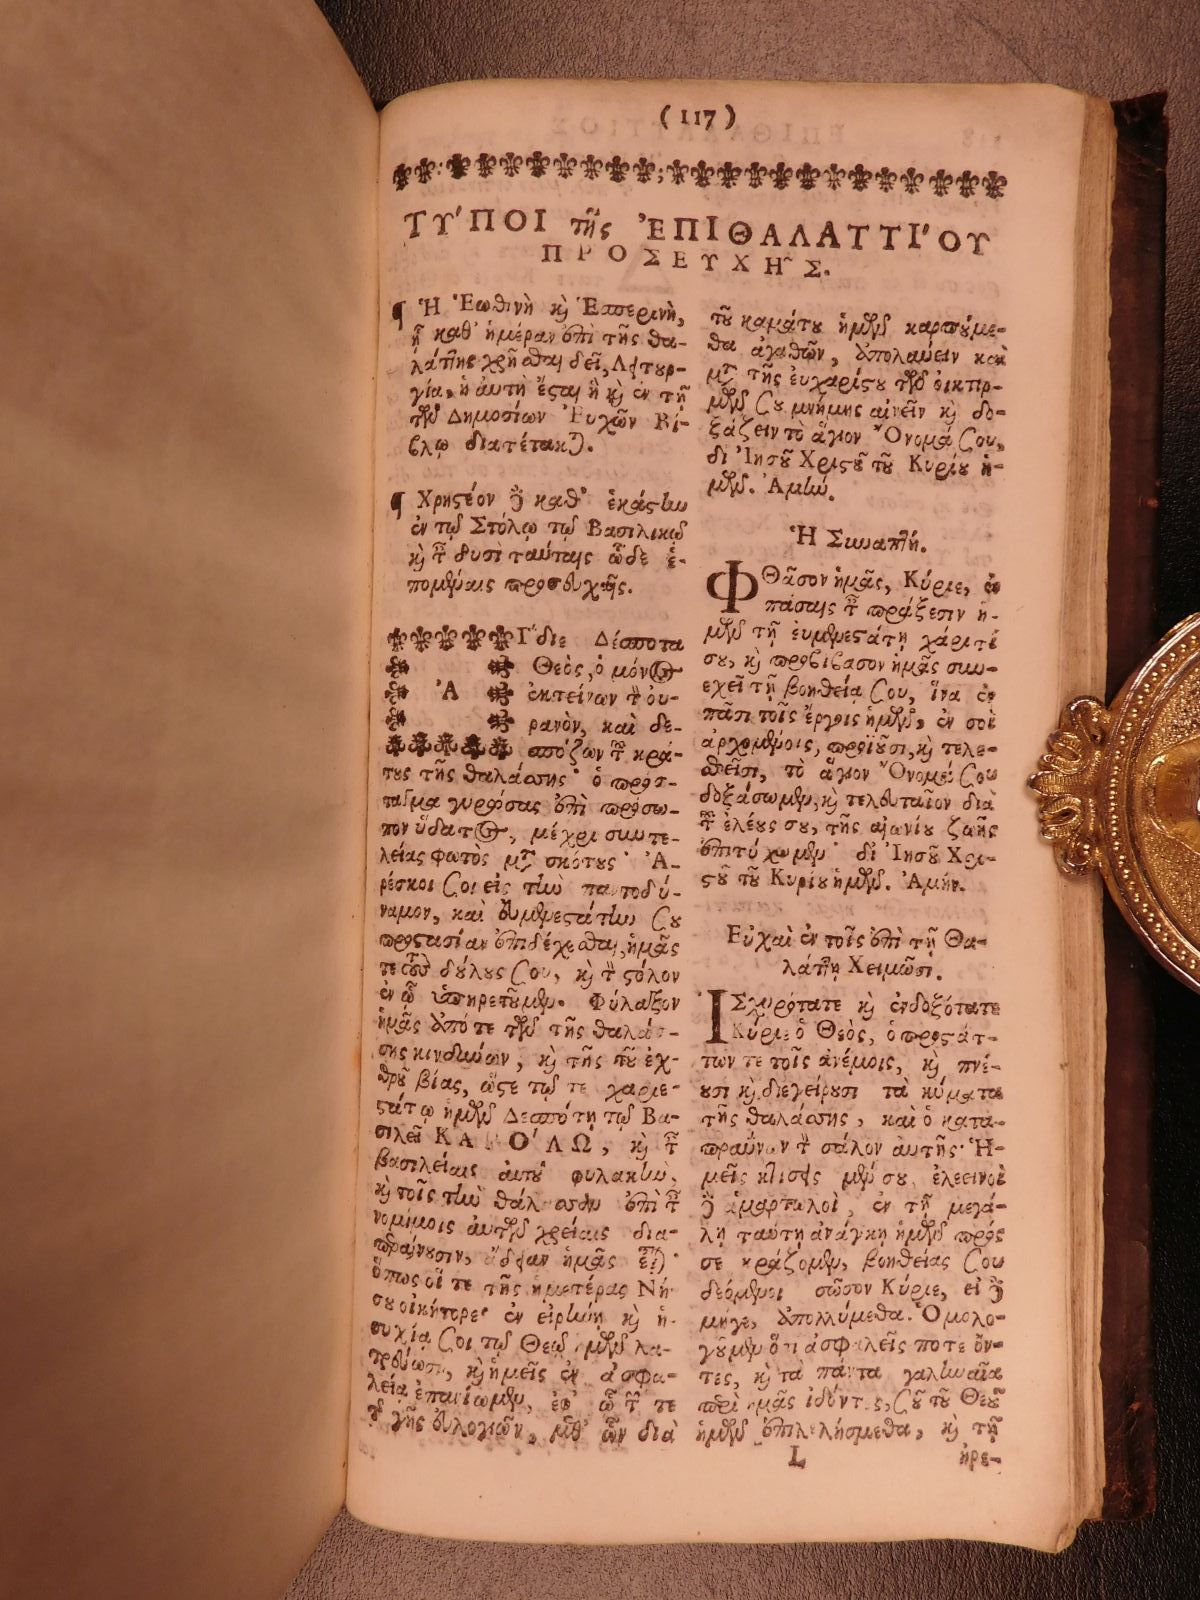 ( 117 )
ΤΥ´ΠΟΙ τῆς ἘΠΙΘΑΛΑΤΤΙ´ΟΥ
ΠΡΟΣΕΥΧΗ῀Σ.
¶ Ἡ Ἑωθινὴ κỳ Ἑσπερινὴ,
ᾗ καθ' ἡμέραν ἐπὶ τῆς θα-
λάττης χρῆσθαι δεῖ, Λειτουρ-
γία, ἡ αὐτὴ ἔσαι ἣ κỳ ἐν τῇ
τῶν Δημοσίων Εὐχῶν Βί-
βλῳ διατέτακται.
¶ Χρηστέον ἢ καθ' ἑκάστην
ἐν τῷ Στόλῳ τῷ Βασιλικῷ
κỳ δυσὶ ταύταις ὧδε ἑ-
πομέναις προσευχαῖς.
Ἀΐδιε Δέσποτα
Θεὸς, ὁ μόνος
ἐκτείνων τὸν οὐ-
ρανὸν, καὶ δε-
σπόζων τοῦ κρά-
τους τῆς θαλάσσης· ὁ πρόσ-
ταγμα γυρώσας ἐπὶ πρόσω-
πον ὕδατος, μέχρι συντε-
λείας φωτὸς μετὰ σκότους· Ἀ-
ρέσκοι Σοι εἰς τὴν παντοδύ-
ναμον, καὶ εὐμενεστάτην Σου
προστασίαν ἐπιδέχεσθαι, ἡμᾶς
τε τοὺς δούλους Σου, κỳ τὸν στόλον
ἐν ᾧ ὑπηρετοῦμεν. Φύλαξον
ἡμᾶς ἀπό τε τῶν τῆς θαλάσ-
σης κινδύνων, κỳ τῆς τοῦ ἐχ-
θροῦ βίας, ὥστε τῷ τε χαριε-
στάτῳ ἡμῶν Δεσπότῃ τῷ Βα-
σιλεῖ ΚΑΡΟ´ΛΩ, κỳ
βασιλείαις αὐτοῦ φυλακὴν,
κỳ τοῖς τὴν θάλασσαν ἐπὶ
νομίμοις αὐτῶν χρείαις δια-
περαίνουσιν, ἄδειαν ἡμᾶς εἶναι·
ὅπως οἵ τε τῆς ἡμετέρας Νή-
σου οἰκήτορες ἐν εἰρήνῃ κỳ ἡ-
συχίᾳ Σοι τῷ Θεῷ ἡμῶν λα-
τρεύωσι, κỳ ἡμεῖς ἐν ἀσφα-
λείᾳ ἐπανίωμεν, ἐφ' ᾧ τε
γῆς εὐλογιῶν, μεθ' ὧν διὰ
τοῦ καμάτου ἡμῶν καρπούμε-
θα ἀγαθῶν, ἀπολαύειν καὶ
μετὰ τῆς εὐχαρίστου τῶν οἰκτιρ-
μῶν Σου μνήμης αἰνεῖν κỳ δο-
ξάζειν τὸ ἅγιον Ὄνομά Σου,
δι' Ἰησοῦ Χριστοῦ τοῦ Κυρίου ἡ-
μῶν. Ἀμήν.
Ἡ Συναπτή.
ΦΘᾶσον ἡμᾶς, Κύριε, ἐν
πάσαις πράξεσιν ἡ-
μῶν τῇ εὐμενεστάτῃ χάριτί
σου, κỳ προβίβασον ἡμᾶς συν-
εχεῖ τῇ βοηθείᾳ Σου, ἵνα ἐν
πᾶσι τοῖς ἔργοις ἡμῶν, ἐν σοὶ
ἀρχομένοις, προϊοῦσι, κỳ τελε-
σθεῖσι, τὸ ἅγιον Ὄνομά Σου
δοξάσωμεν, κỳ τελευταῖον διὰ
τοῦ ἐλέους σου, τῆς αἰωνίου ζωῆς
ἐπιτύχωμεν· δι' Ἰησοῦ Χρι-
στοῦ τοῦ Κυρίου ἡμῶν. Ἀμήν.
Εὐχαὶ ἐν τοῖς ἐπὶ τῇ Θα-
λάττῃ Χειμῶσι.
ἸΣχυρότατε κỳ ἐνδοξότατε
Κύριε ὁ Θεὸς, ὁ προστάτ-
των τε τοῖς ἀνέμοις, κỳ πνέ-
ουσι κỳ διεγείρουσι τὰ κύματα
τῆς θαλάσσης, καὶ ὁ κατα-
πραΰνων τὸν σάλον αὐτῆς· Ἡ-
μεῖς κτίσεις μέν σου, ἐλεεινοὶ
ἁμαρτωλοὶ, ἐν τῇ μεγά-
λῃ ταύτῃ ἀνάγκῃ ἡμῶν πρός
σε κράζομεν, βοηθείας Σου
δεόμενοι σῶσον Κύριε, εἰ
μήγε, ἀπολλύμεθα. Ὁμολο-
γοῦμεν ὅτι ἀσφαλεῖς ποτε ὄν-
τες, κỳ τὰ πάντα γαληναῖα
περὶ ἡμᾶς ἰδόντες, Σοῦ τοῦ Θεοῦ
ἡμῶν ἐπιλελήσμεθα, κỳ τῇ
L ἠρε-